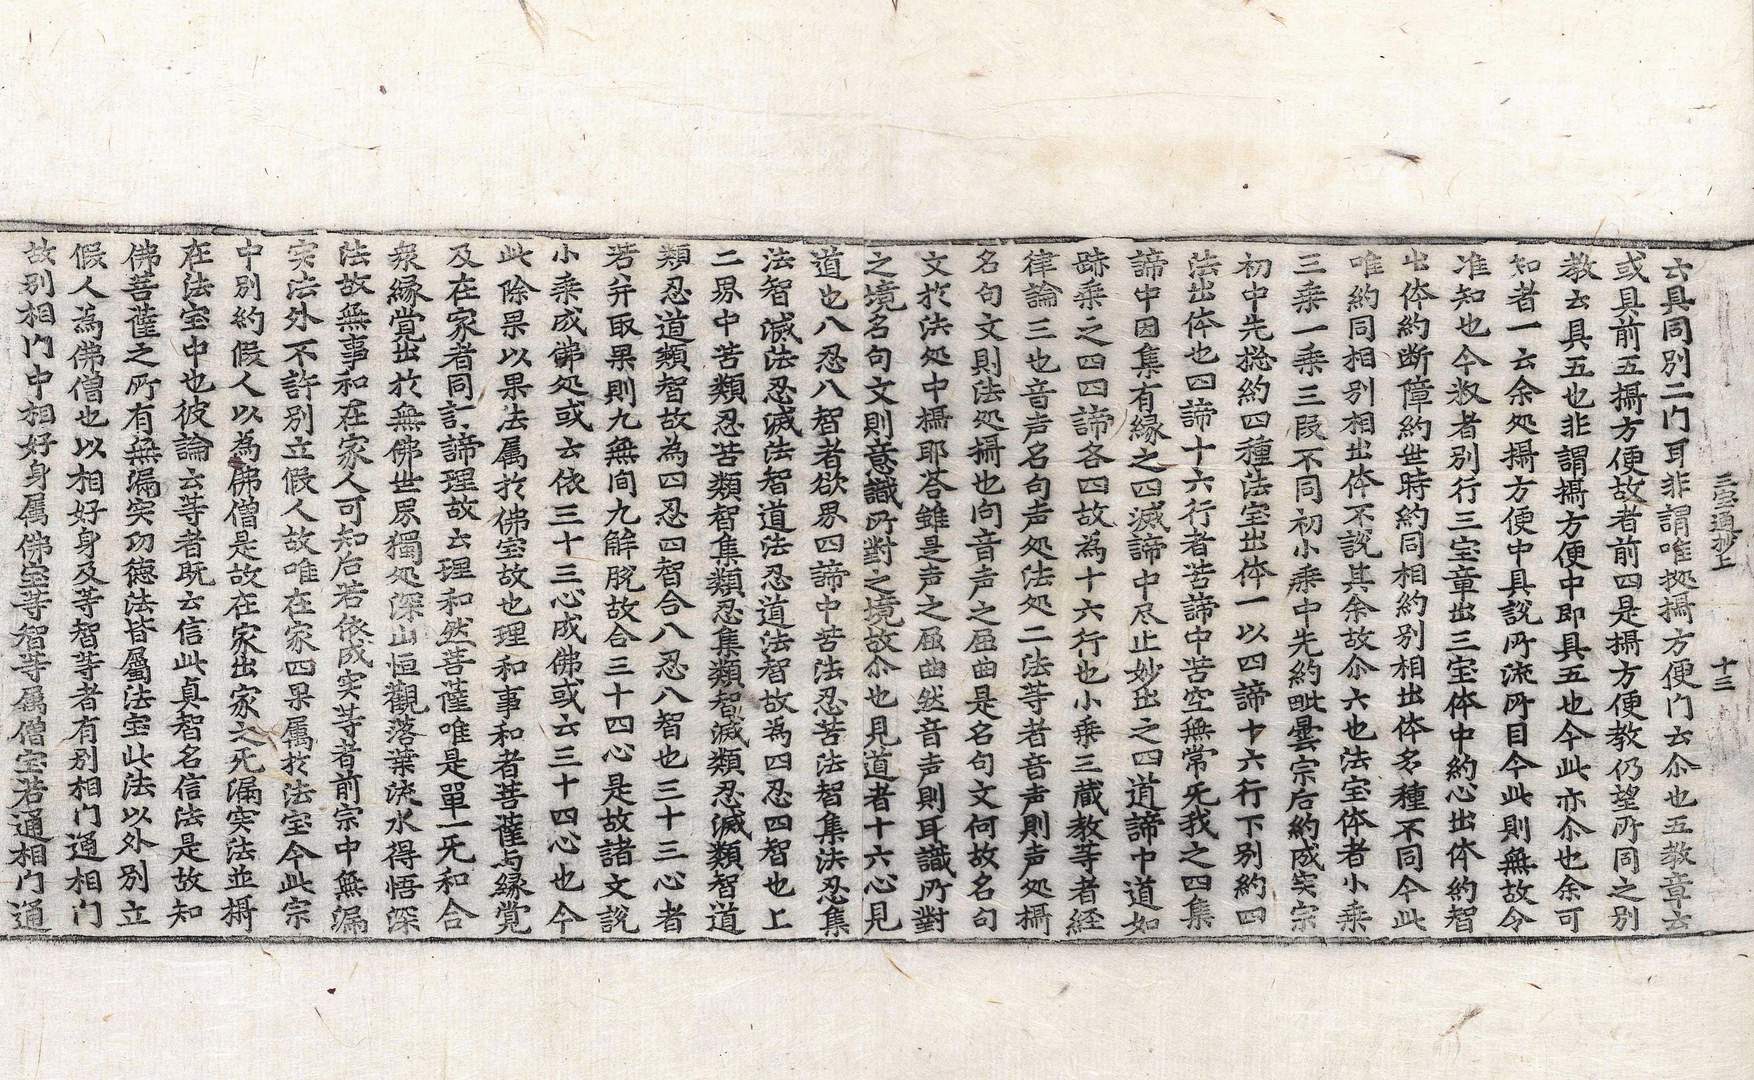 三宝通抄上 十三
六具同別二门耳非謂唯㨿攝方便门云尒也五教章云
或具前五攝方便故者前四是攝方便教仍望所同之別
教云具五也非謂攝方便中即具五也今此亦尒也余可
知者一云余処攝方便中具說所流所目今此則無故今
准知也今叙者別行三宝章出三宝体中約心出体約智
出体約断障約世時約同相約別相出体多種不同今此
唯約同相別相出体不說其余故尒六也法宝体者小乘
三乘一乘三段不同初小乘中先約毗曇宗后約成宲宗
初中先捴約四種法宝出体一以四諦十六行下別約四
法出体也四諦十六行者苦諦中苦空無常无我之四集
諦中因集有縁之四滅諦中尽止妙出之四道諦中道如
跡乘之四四諦各四故為十六行也小乘三蔵教等者経
律論三也音声名句声処法処二法等者音声則声処攝
名句文則法処攝也问音声之屈曲是名句文何故名句
文於法処中攝耶荅雖是声之屈曲然音声則耳識所對
之境名句文則意識所對之境故尒也見道者十六心見
道也八忍八智者欲界四諦中苦法忍苦法智集法忍集
法智滅法忍滅法智道法忍道法智故為四忍四智也上
二界中苦類忍苦類智集類忍集類智滅類忍滅類智道
類忍道類智故為四忍四智合八忍八智也三十三心者
若并取果則九無间九解脱故合三十四心是故諸文說
小乘成佛処或云依三十三心成佛或云三十四心也今
此除果以果法属於佛宝故也理和事和者菩薩与縁覚
及在家者同訂諦理故云理和然菩薩唯是單一无和合
衆縁覚出於無佛世界獨処深山恒觀落葉流水得悟深
法故無事和在家人可知后若依成宲等者前宗中無漏
宲法外不許別立假人故唯在家四果属於法宝今此宗
中別約假人以為佛僧是故在家出家之无漏宲法並攝
在法宝中也彼論云等者既云信此真智名信法是故知
佛菩薩之所有無漏宲功德法皆屬法宝此法以外別立
假人為佛僧也以相好身及等智等者有別相门通相门
故別相门中相好身属佛宝等智等属僧宝若通相门通